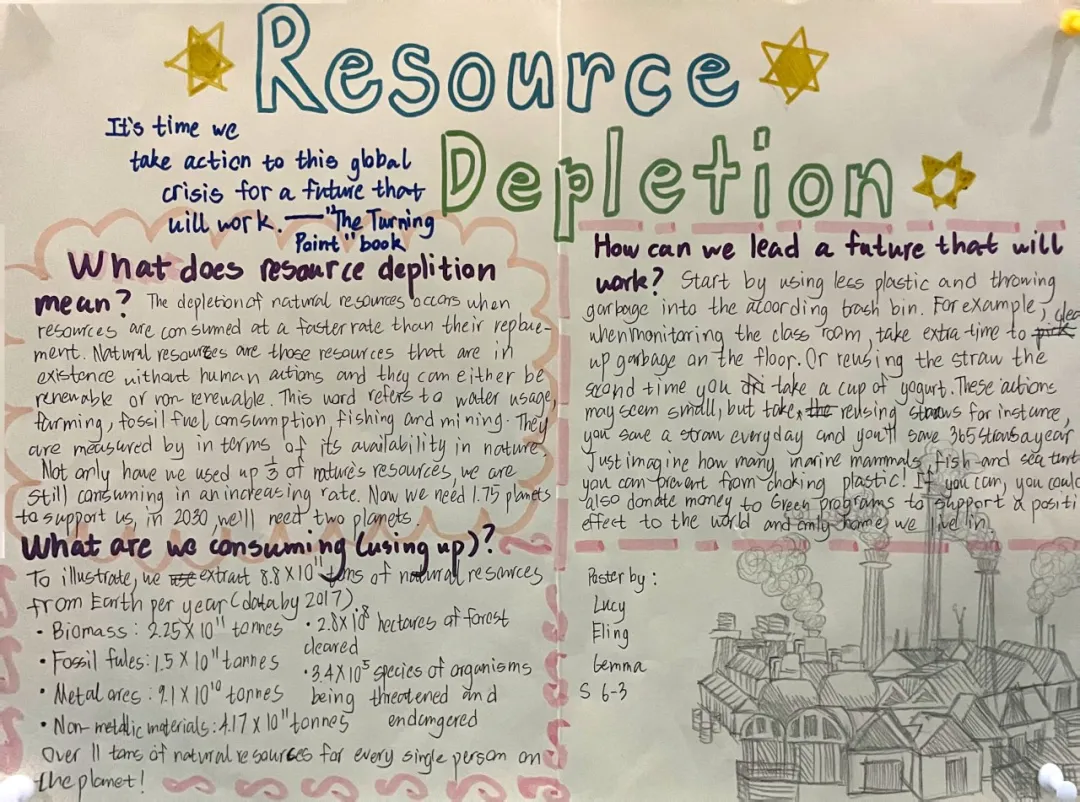 Resource
Depletion
It's time we
take action to this global
crisis for a future that
will work. —"The Turning
Point" book
What does resource deplition
mean? The depletion of natural resources occors when
resources are consumed at a faster rate than their replace-
ment. Natural resources are those resources that are in
existence without human actions and they can either be
renewable or non renewable. This word refers to water usage,
farming, fossil fuel consumption, fishing and mining. They
are measured by in terms of its availability in nature.
Not only have we used up 1/3 of nature's resources, we are
still consuming in an increasing rate. Now we need 1.75 planets
to support us, in 2030 we'll need two planets.
What are we consuming (using up)?
To illustrate, we use extract 8.8 X 10¹¹ tons of natural resources
from Earth per year (data by 2017).
• Biomass: 2.25 X 10¹¹ tonnes
• Fossil fules: 1.5 X 10¹¹ tonnes
• Metal ores: 9.1 X 10¹⁰ tonnes
• Non-metallic materials: 4.17 X 10¹¹ tonnes
• 2.8 X 10⁸ hectares of forest
cleared
• 3.4 X 10⁵ species of organisms
being threatened and
endangered
Over 11 tons of natural resources for every single person on
the planet!
How can we lead a future that will
work? Start by using less plastic and throwing
garbage into the acoording trash bin. For example,
when monitoring the class room, take extra time to pick
up garbage on the floor. Or reusing the straw the
second time you dri take a cup of yogurt. These actions
may seem small, but take, the reusing straws for instance,
you save a straw everyday and you'll save 365 straws a year
Just imagine how many marine mammals, fish and sea turt
you can prevent from choking plastic! If you can, you could
also donate money to Green programs to support a positi
effect to the world and only home we live in
Poster by:
Lucy
Eling
Gemma
S 6-3